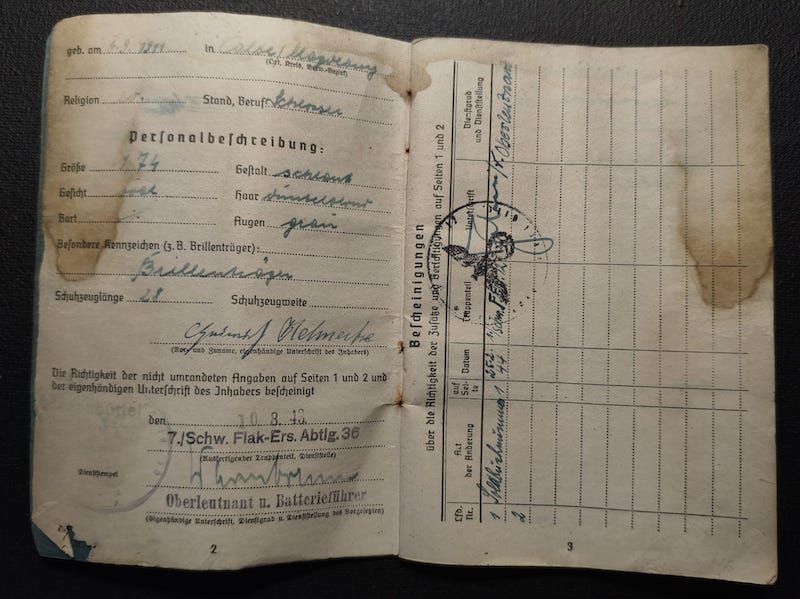 geb. am 1911 in
(Ort, Kreis, Verw.-Bezirk)
Religion Stand, Beruf Schlosser
Personalbeschreibung:
Größe 1.74 Gestalt schlank
Gesicht oval Haar dunkelblond
Bart Augen grau
Besondere Kennzeichen (z. B. Brillenträger):
Brillenträger
Schuhzeuglänge 28 Schuhzeugweite
(Vor- und Zuname, eigenhändige Unterschrift des Inhabers)
Die Richtigkeit der nicht umrandeten Angaben auf Seiten 1 und 2 und
der eigenhändigen Unterschrift des Inhabers bescheinigt
den 10.3.43
7./Schw. Flak-Ers. Abtlg. 36
(Ausfertigender Truppenteil, Dienststelle)
Dienststempel
Oberleutnant u. Batterieführer
(Eigenhändige Unterschrift, Dienstgrad u. Dienststellung des Vorgesetzten)
2
Bescheinigungen
über die Richtigkeit der Zusätze und Berichtigungen auf Seiten 1 und 2
Lfd. Nr.
Art der Änderung
auf Seite
Datum
Truppenteil
Unterschrift
Dienstgrad und Dienststellung
1 1 44 Oberleutnant
2
3